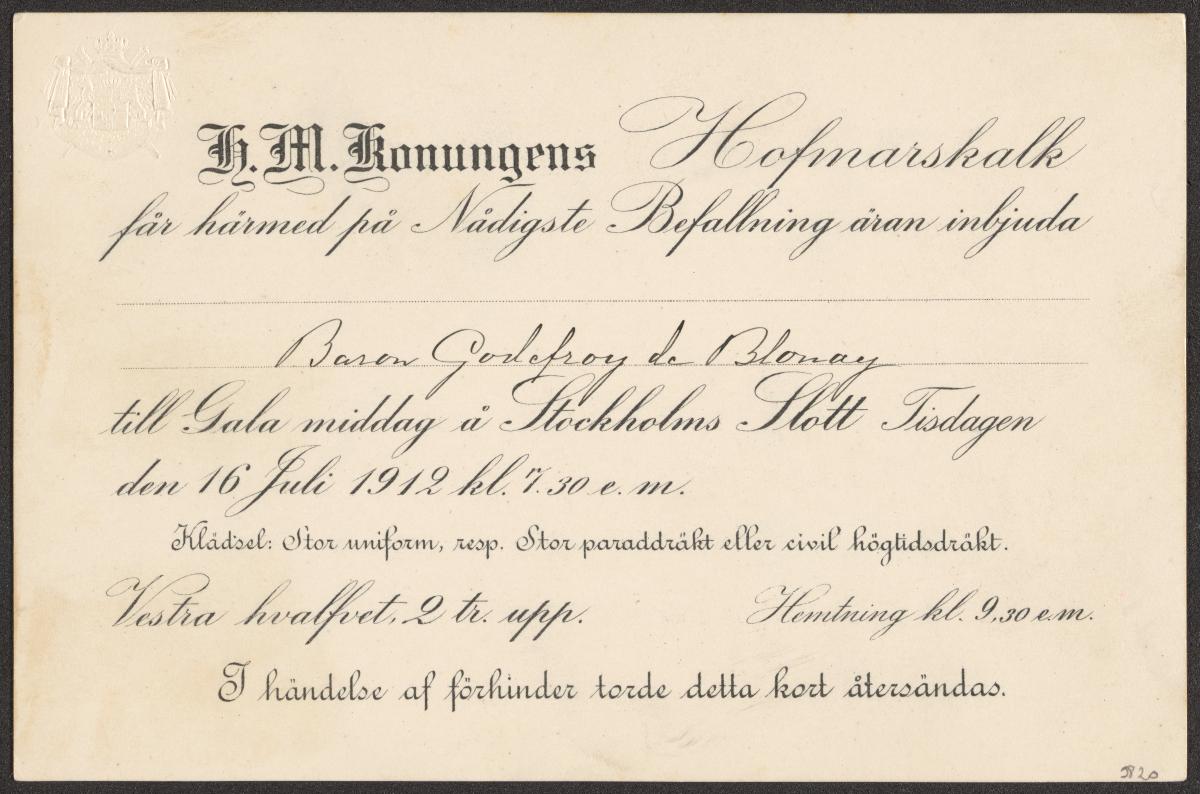 H. M. Konungens Hofmarskalk
får härmed på Nådigste Befallning äran inbjuda
Baron Godefroy de Blonay
till Gala middag å Stockholms Slott Tisdagen
den 16 Juli 1912 kl. 7.30 e. m.
Klädsel: Stor uniform, resp. Stor paraddräkt eller civil högtidsdräkt.
Vestra hvalfvet, 2 tr. upp. Hemtning kl. 9,30 e.m.
I händelse af förhinder torde detta kort återsändas.